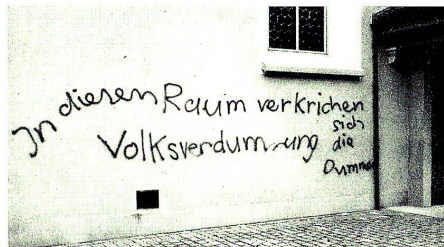 In diesen Raum verkrichen
sich
die
Volksverdummung